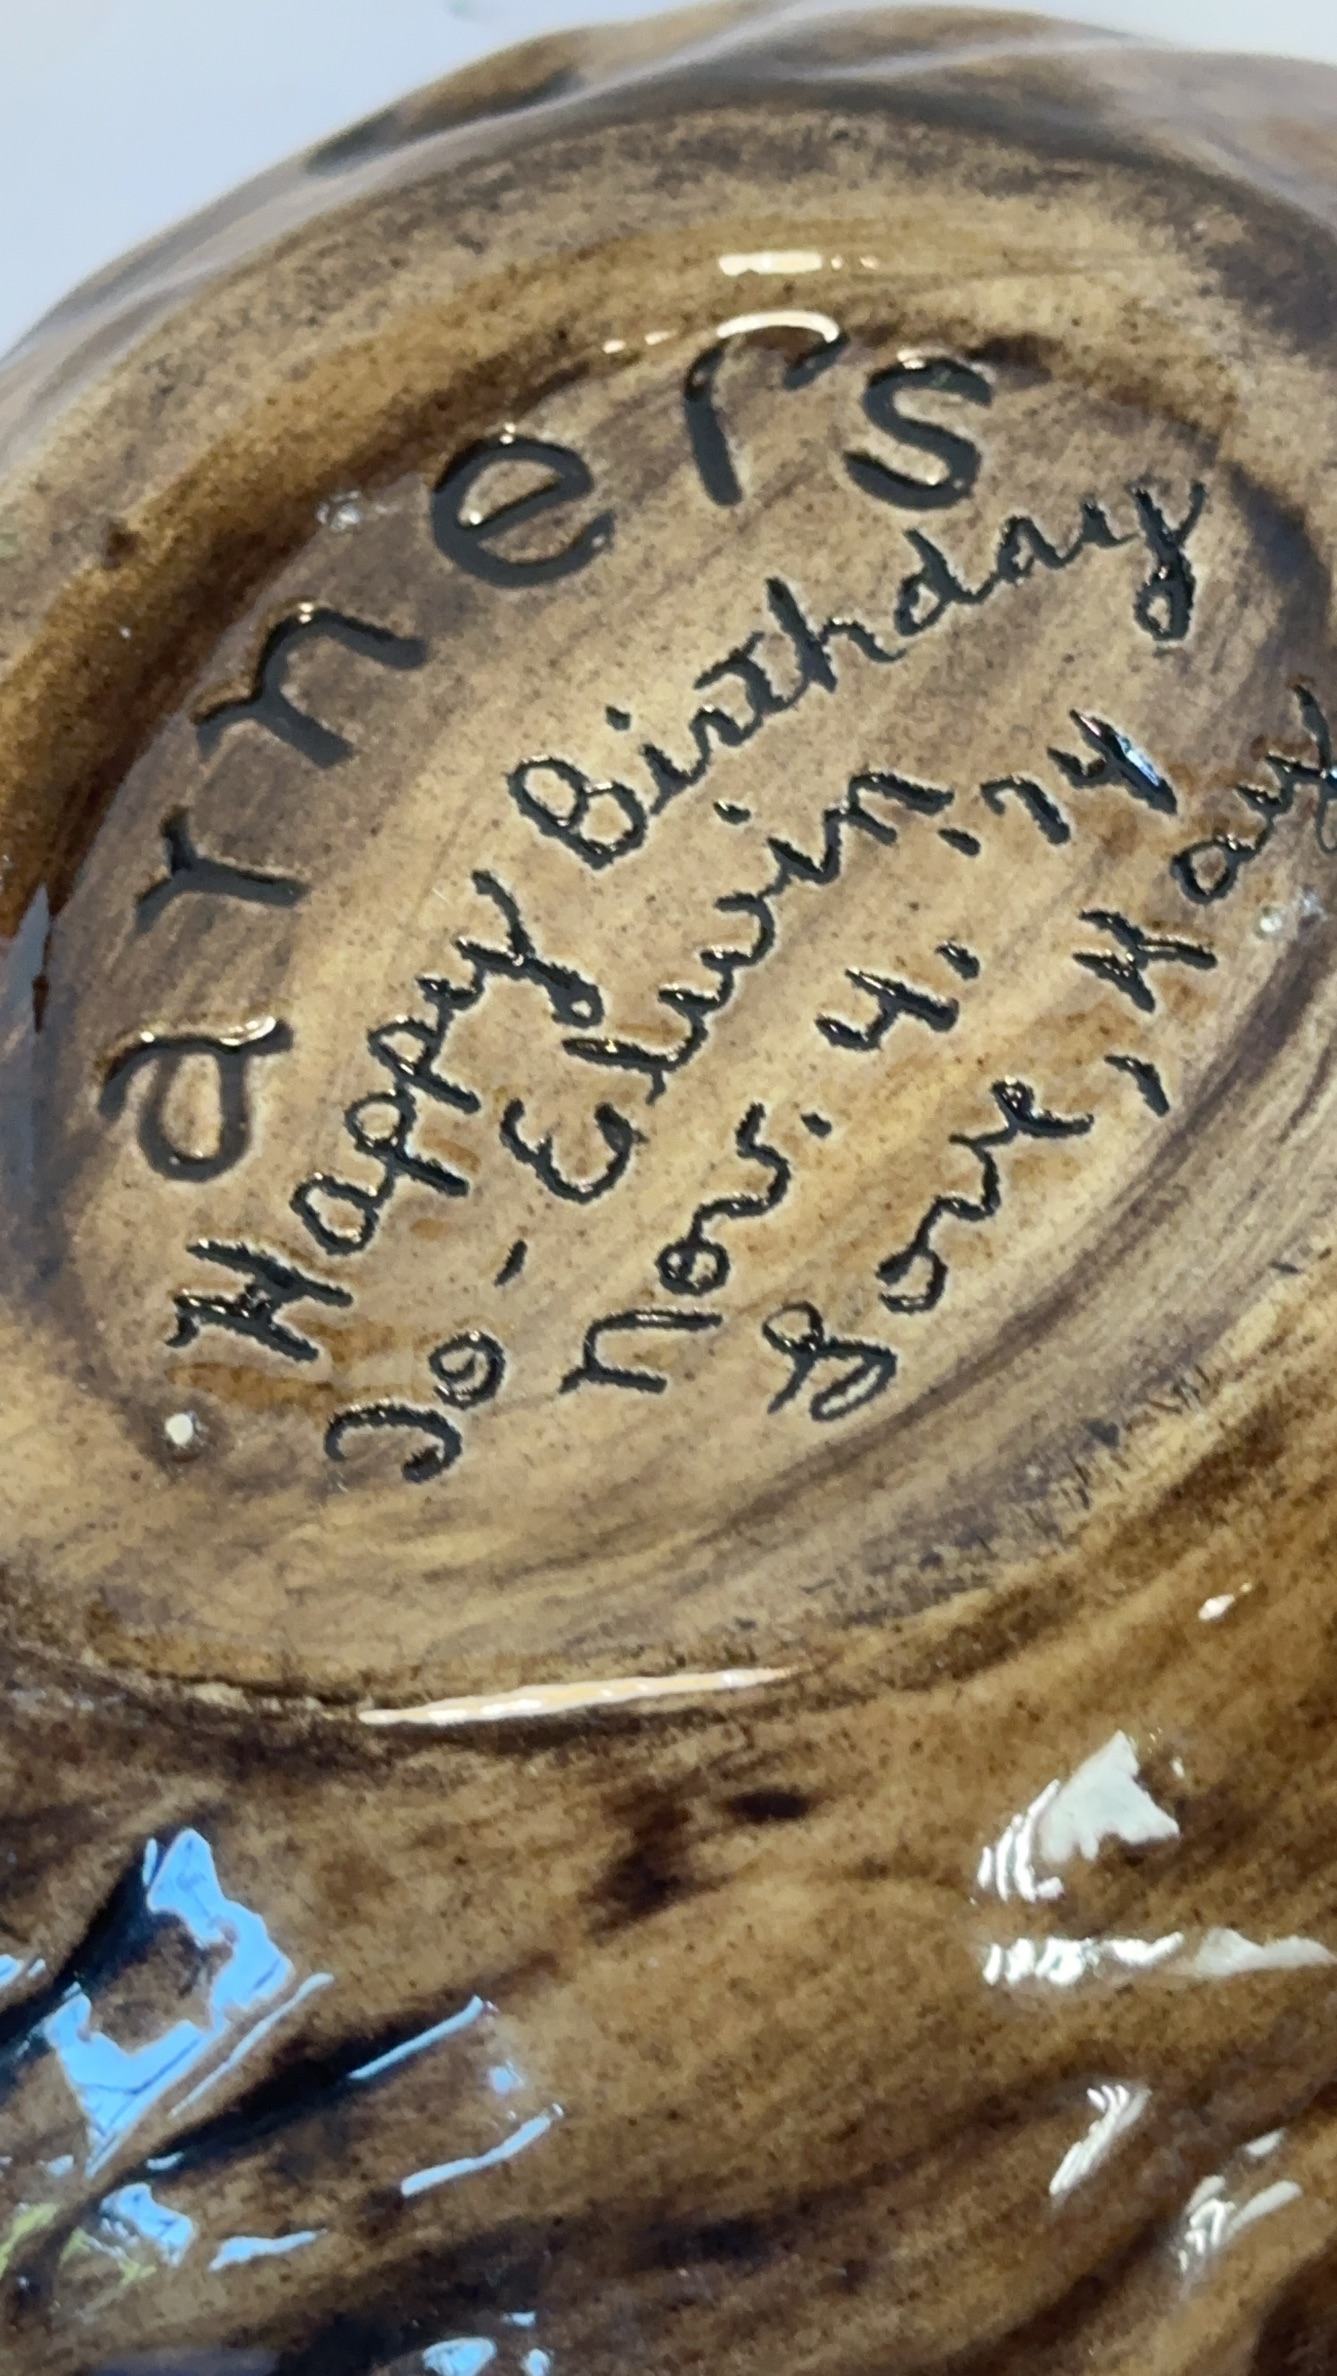 arners
Happy Birthday
To - Elwin
Nov. 4, '74
Love, Kay